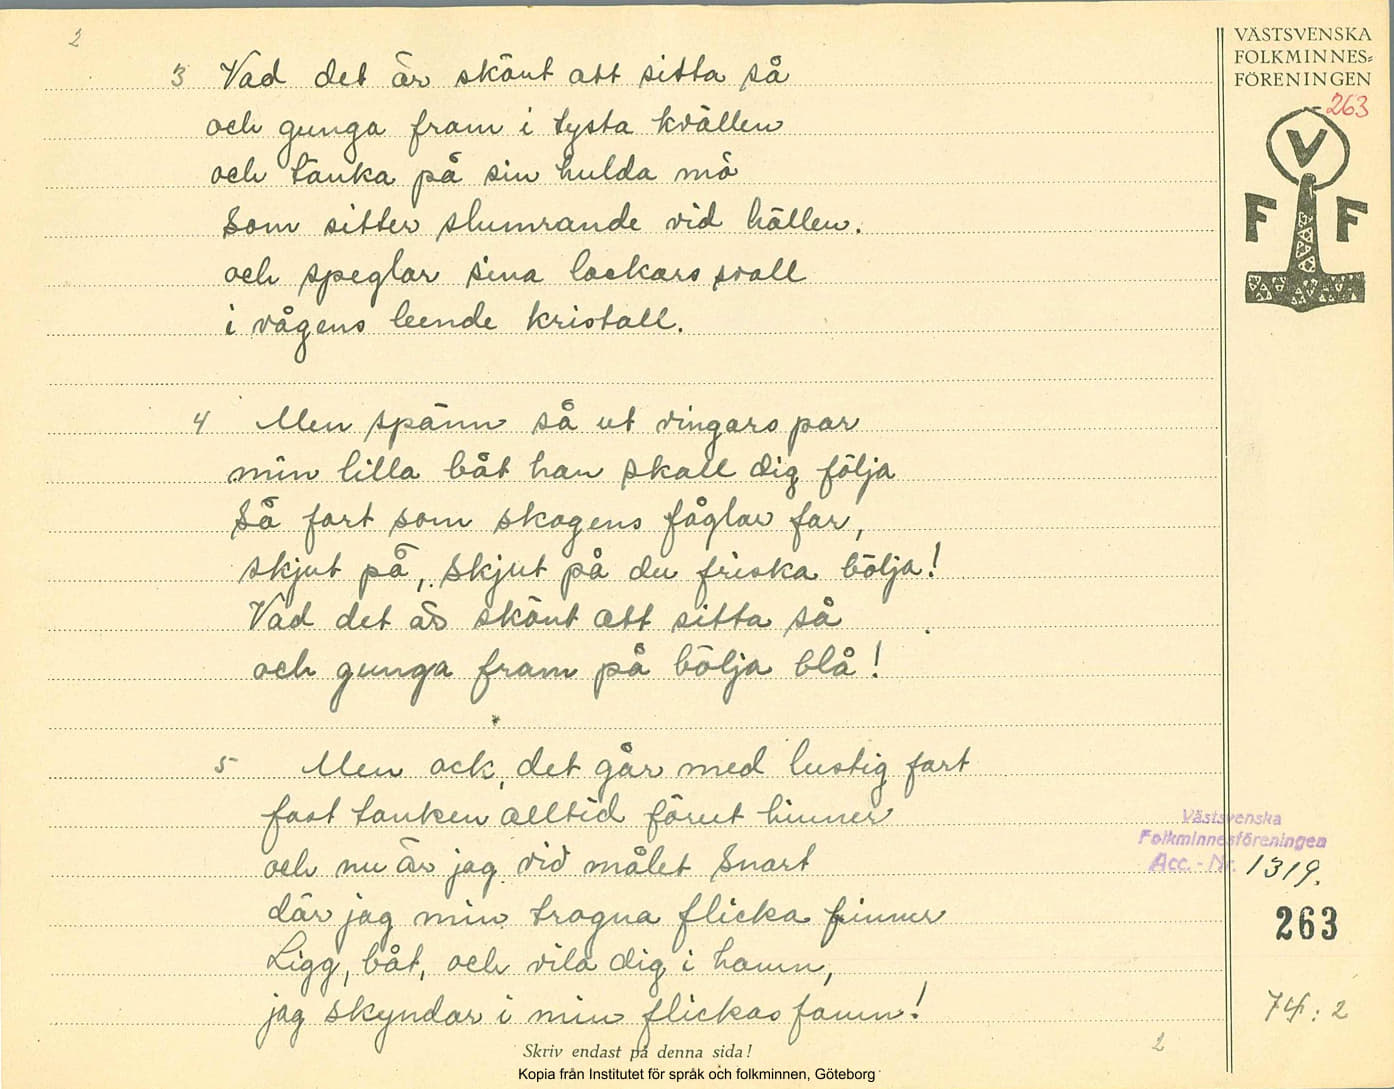 2
VÄSTSVENSKA
FOLKMINNES-
FÖRENINGEN
263
V
F F
3 Vad det är skönt att sitta så
och gunga fram i tysta kvällen
och tänka på sin hulda mö
Som sitter slumrande vid hällen.
och speglar sina lockars svall
i vågens leende kristall.
4 Men spänn så ut vingars par
min lilla båt han skall dig följa
Så fort som skogens fåglar far,
skjut på, skjut på du friska bölja!
Vad det är skönt att sitta så
och gunga fram på bölja blå!
5 Men ock, det går med lustig fart
fast tanken alltid förut hinner
och nu är jag vid målet snart
där jag min trogna flicka finner
Ligg, båt, och vila dig i hamn,
jag skyndar i min flickas famn!
Västsvenska
Folkminnesföreningen
Acc. - Nr. 1319.
263
74: 2
2
Skriv endast på denna sida!
Kopia från Institutet för språk och folkminnen, Göteborg